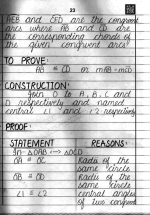 23
AEB and CFD are the congruent
arcs where AB and CD are
the corresponding chords of
the given congruent arcs.
TO PROVE:
AB ≅ CD or mAB = mCD
CONSTRUCTION:
Join O to A, B, C and
D respectively and named
central ∠1 and ∠2 respectively
PROOF:
STATEMENT REASONS:
In ΔOAB ↔ ΔOCD
OA ≅ OC Radii of the
same circle
OB ≅ OD Radii of the
same circle
∠1 ≅ ∠2 central angles
of two congruent